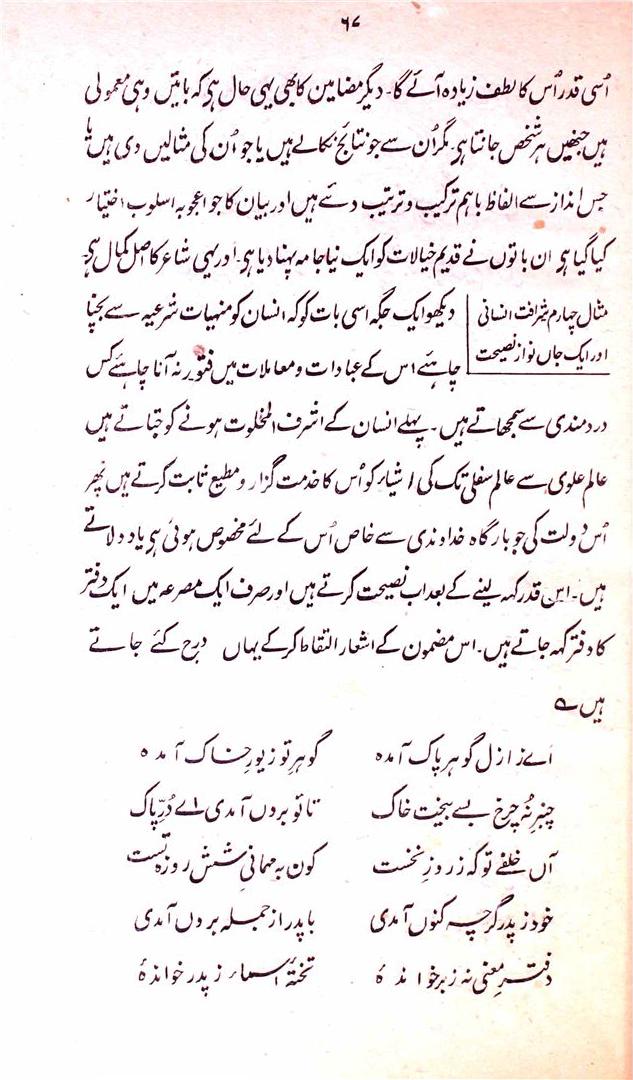 ۶۷
اُسی قدر اُس کا لطف زیادہ آئے گا۔ دیگر مضامین کا بھی یہی حال ہی کہ باتیں وہی معمولی
ہیں جنھیں ہر شخص جانتا ہی۔ مگر اُن سے جو نتائج نکالے ہیں یا جو اُن کی مثالیں دی ہیں یا
جس انداز سے الفاظ باہم ترکیب و ترتیب دئے ہیں اور بیان کا جو اعجوبہ اسلوب اختیار
کیا گیا ہی ان باتوں نے قدیم خیالات کو ایک نیا جامہ پہنا دیا ہی۔ اور یہی شاعر کا اصل کمال ہی۔
مثال چہارم شرافت انسانی
اور ایک جاں نواز نصیحت
دیکھو ایک جگہ اسی بات کو کہ انسان کو منہیات شرعیہ سے بچنا
چاہئے اس کے عبادات و معاملات میں فتور نہ آنا چاہئے کس
دردمندی سے سمجھاتے ہیں۔ پہلے انسان کے اشرف المخلوت ہونے کو جتاتے ہیں
عالم علوی سے عالم سفلی تک کی اشیاء کو اُس کا خدمت گزار و مطیع ثابت کرتے ہیں پھر
اُس دولت کی جو بارگاہ خداوندی سے خاص اُس کے لئے مخصوص ہوئی ہی یاد دلاتے
ہیں۔ اس قدر کہہ لینے کے بعد اب نصیحت کرتے ہیں اور صرف ایک مصرعہ میں ایک دفتر
کا دفتر کہہ جاتے ہیں۔ اس مضمون کے اشعار التقاط کر کے یہاں درج کئے جاتے
ہیں ؎
اے ز ازل گوہر پاک آمدہ گوہر تو زیور خاک آمدہ
چنبر نُہ چرخ بسے بیخت خاک تا تو بروں آمدی اے دُرِّ پاک
آں خلفے تو کہ ز روز نخست کون بہ مہمانی شش روزہ تست
خود ز پدر گرچہ کنوں آمدی با پدر از جملہ بروں آمدی
دفتر معنی نہ زبر خواندۂ تختۂ اسماء ز پدر خواندۂ